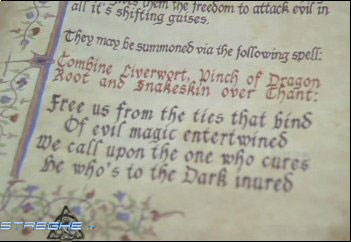 them the freedom to attack evil in
all it's shifting guises.
They may be summoned via the following spell:
Combine Liverwort, Pinch of Dragon
Root and Snakeskin over Chant:
Free us from the ties that bind
Of evil magic entertwined
We call upon the one who cures
He who's to the Dark inured
STREGHE